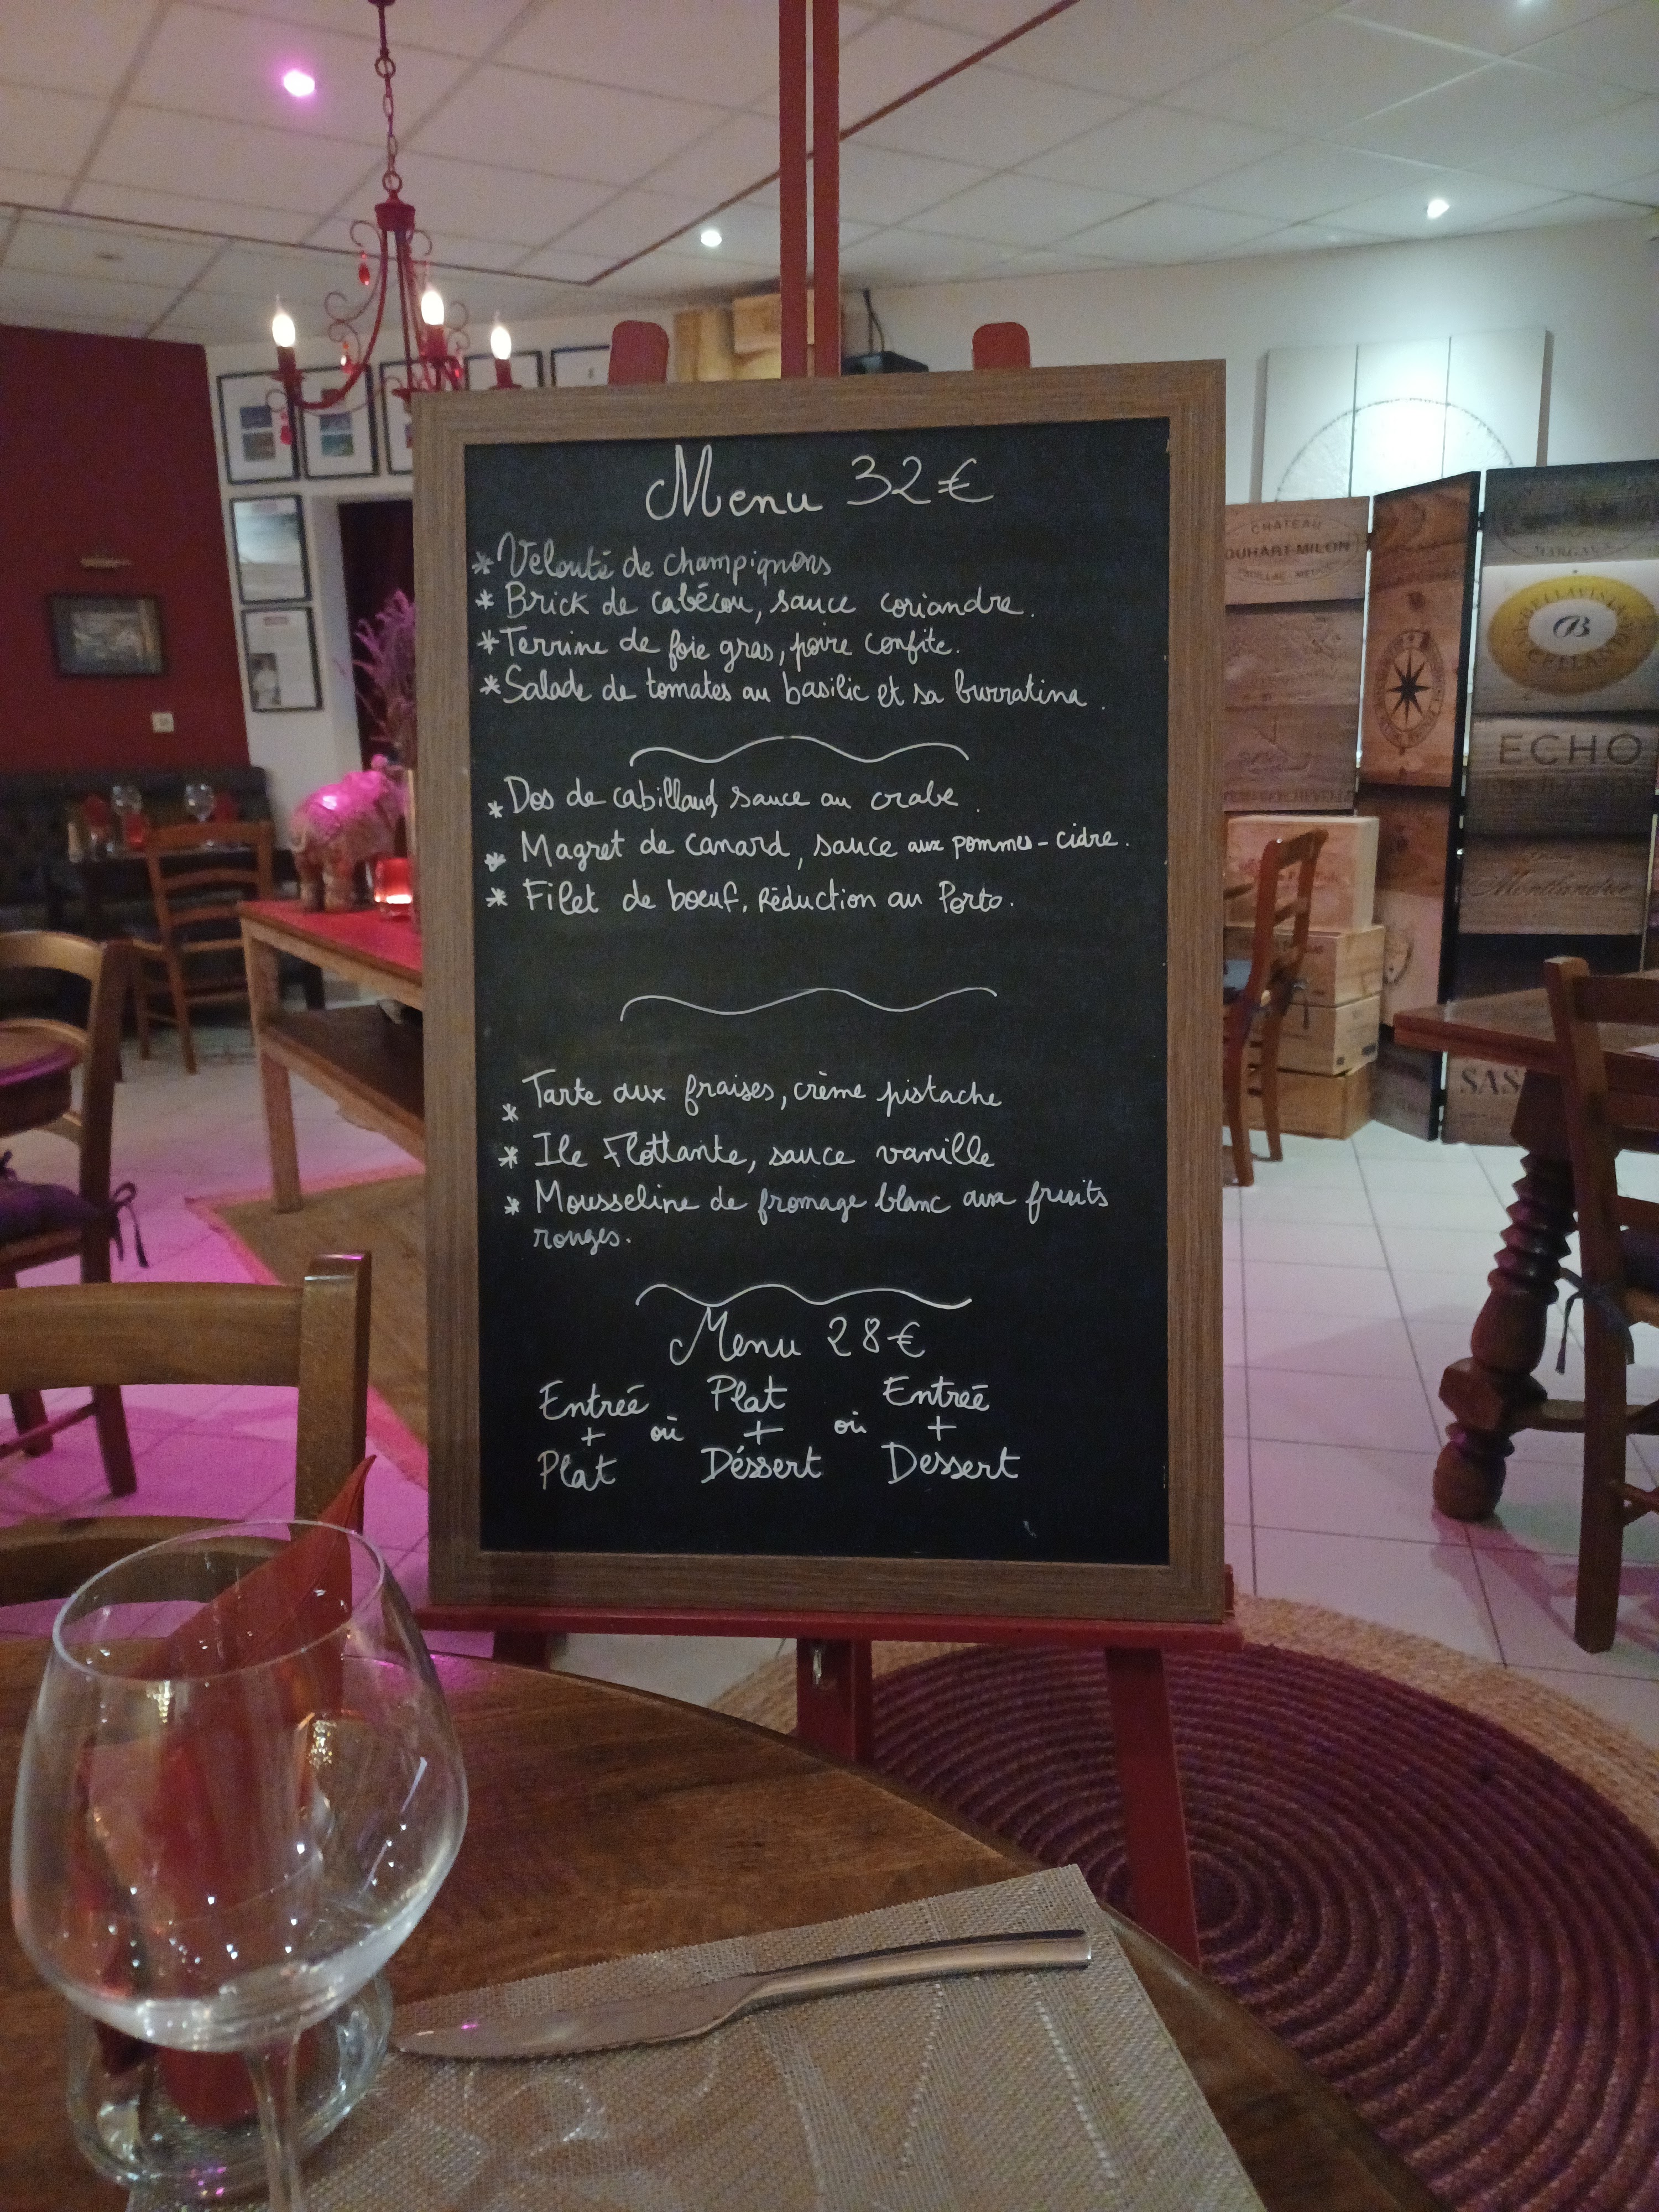 Menu 32€
* Velouté de champignons
* Brick de cabécou, sauce coriandre.
* Terrine de foie gras, poire confite.
* Salade de tomates au basilic et sa burratina.
* Dos de cabillaud, sauce au crabe.
* Magret de canard, sauce aux pommes-cidre.
* Filet de boeuf, Réduction au Porto.
* Tarte aux fraises, crème pistache
* Ile Flottante, sauce vanille
* Mousseline de fromage blanc aux fruits
rouges.
Menu 28€
Entreé Plat Entreé
+ où + où +
Plat Déssert Dessert
CHATEAU
DUHART-MILON
BELLAVISTA
B
ECHO
SAS